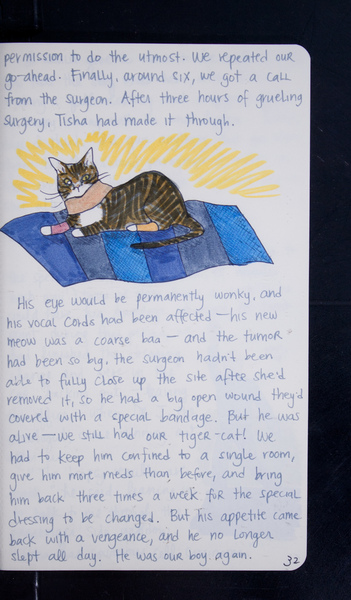 permission to do the utmost. We repeated our
go-ahead. Finally, around six, we got a call
from the surgeon. After three hours of grueling
surgery, Tisha had made it through.
His eye would be permanently wonky, and
his vocal cords had been affected — his new
meow was a coarse baa — and the tumor
had been so big, the surgeon hadn't been
able to fully close up the site after she'd
removed it, so he had a big open wound they'd
covered with a special bandage. But he was
alive — we still had our tiger-cat! We
had to keep him confined to a single room,
give him more meds than before, and bring
him back three times a week for the special
dressing to be changed. But his appetite came
back with a vengeance, and he no longer
slept all day. He was our boy again.
32